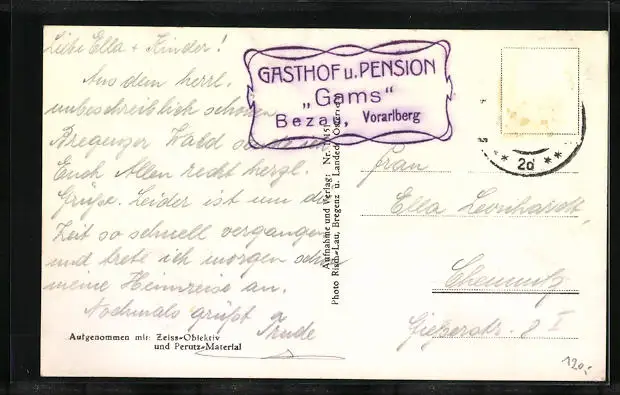 Liebe Ella + Kinder!
Aus dem herrl.
unbeschreiblich schönen
Bregenzer Wald sende ich
Euch Allen recht herzl.
Grüße. Leider ist um die
Zeit so schnell vergangen
und trete ich morgen schon
meine Heimreise an.
Nochmals grüßt
Trude
Aufgenommen mit: Zeiss-Objektiv
und Perutz-Material
GASTHOF u. PENSION
„Gams“
Bezau, Vorarlberg
Aufnahme und Verlag:
Photo Risch-Lau, Bregenz u. Landeck
** 2d **
Frau
Ella Leonhardt,
Chemnitz
Gießerstr. 8 I
120,-